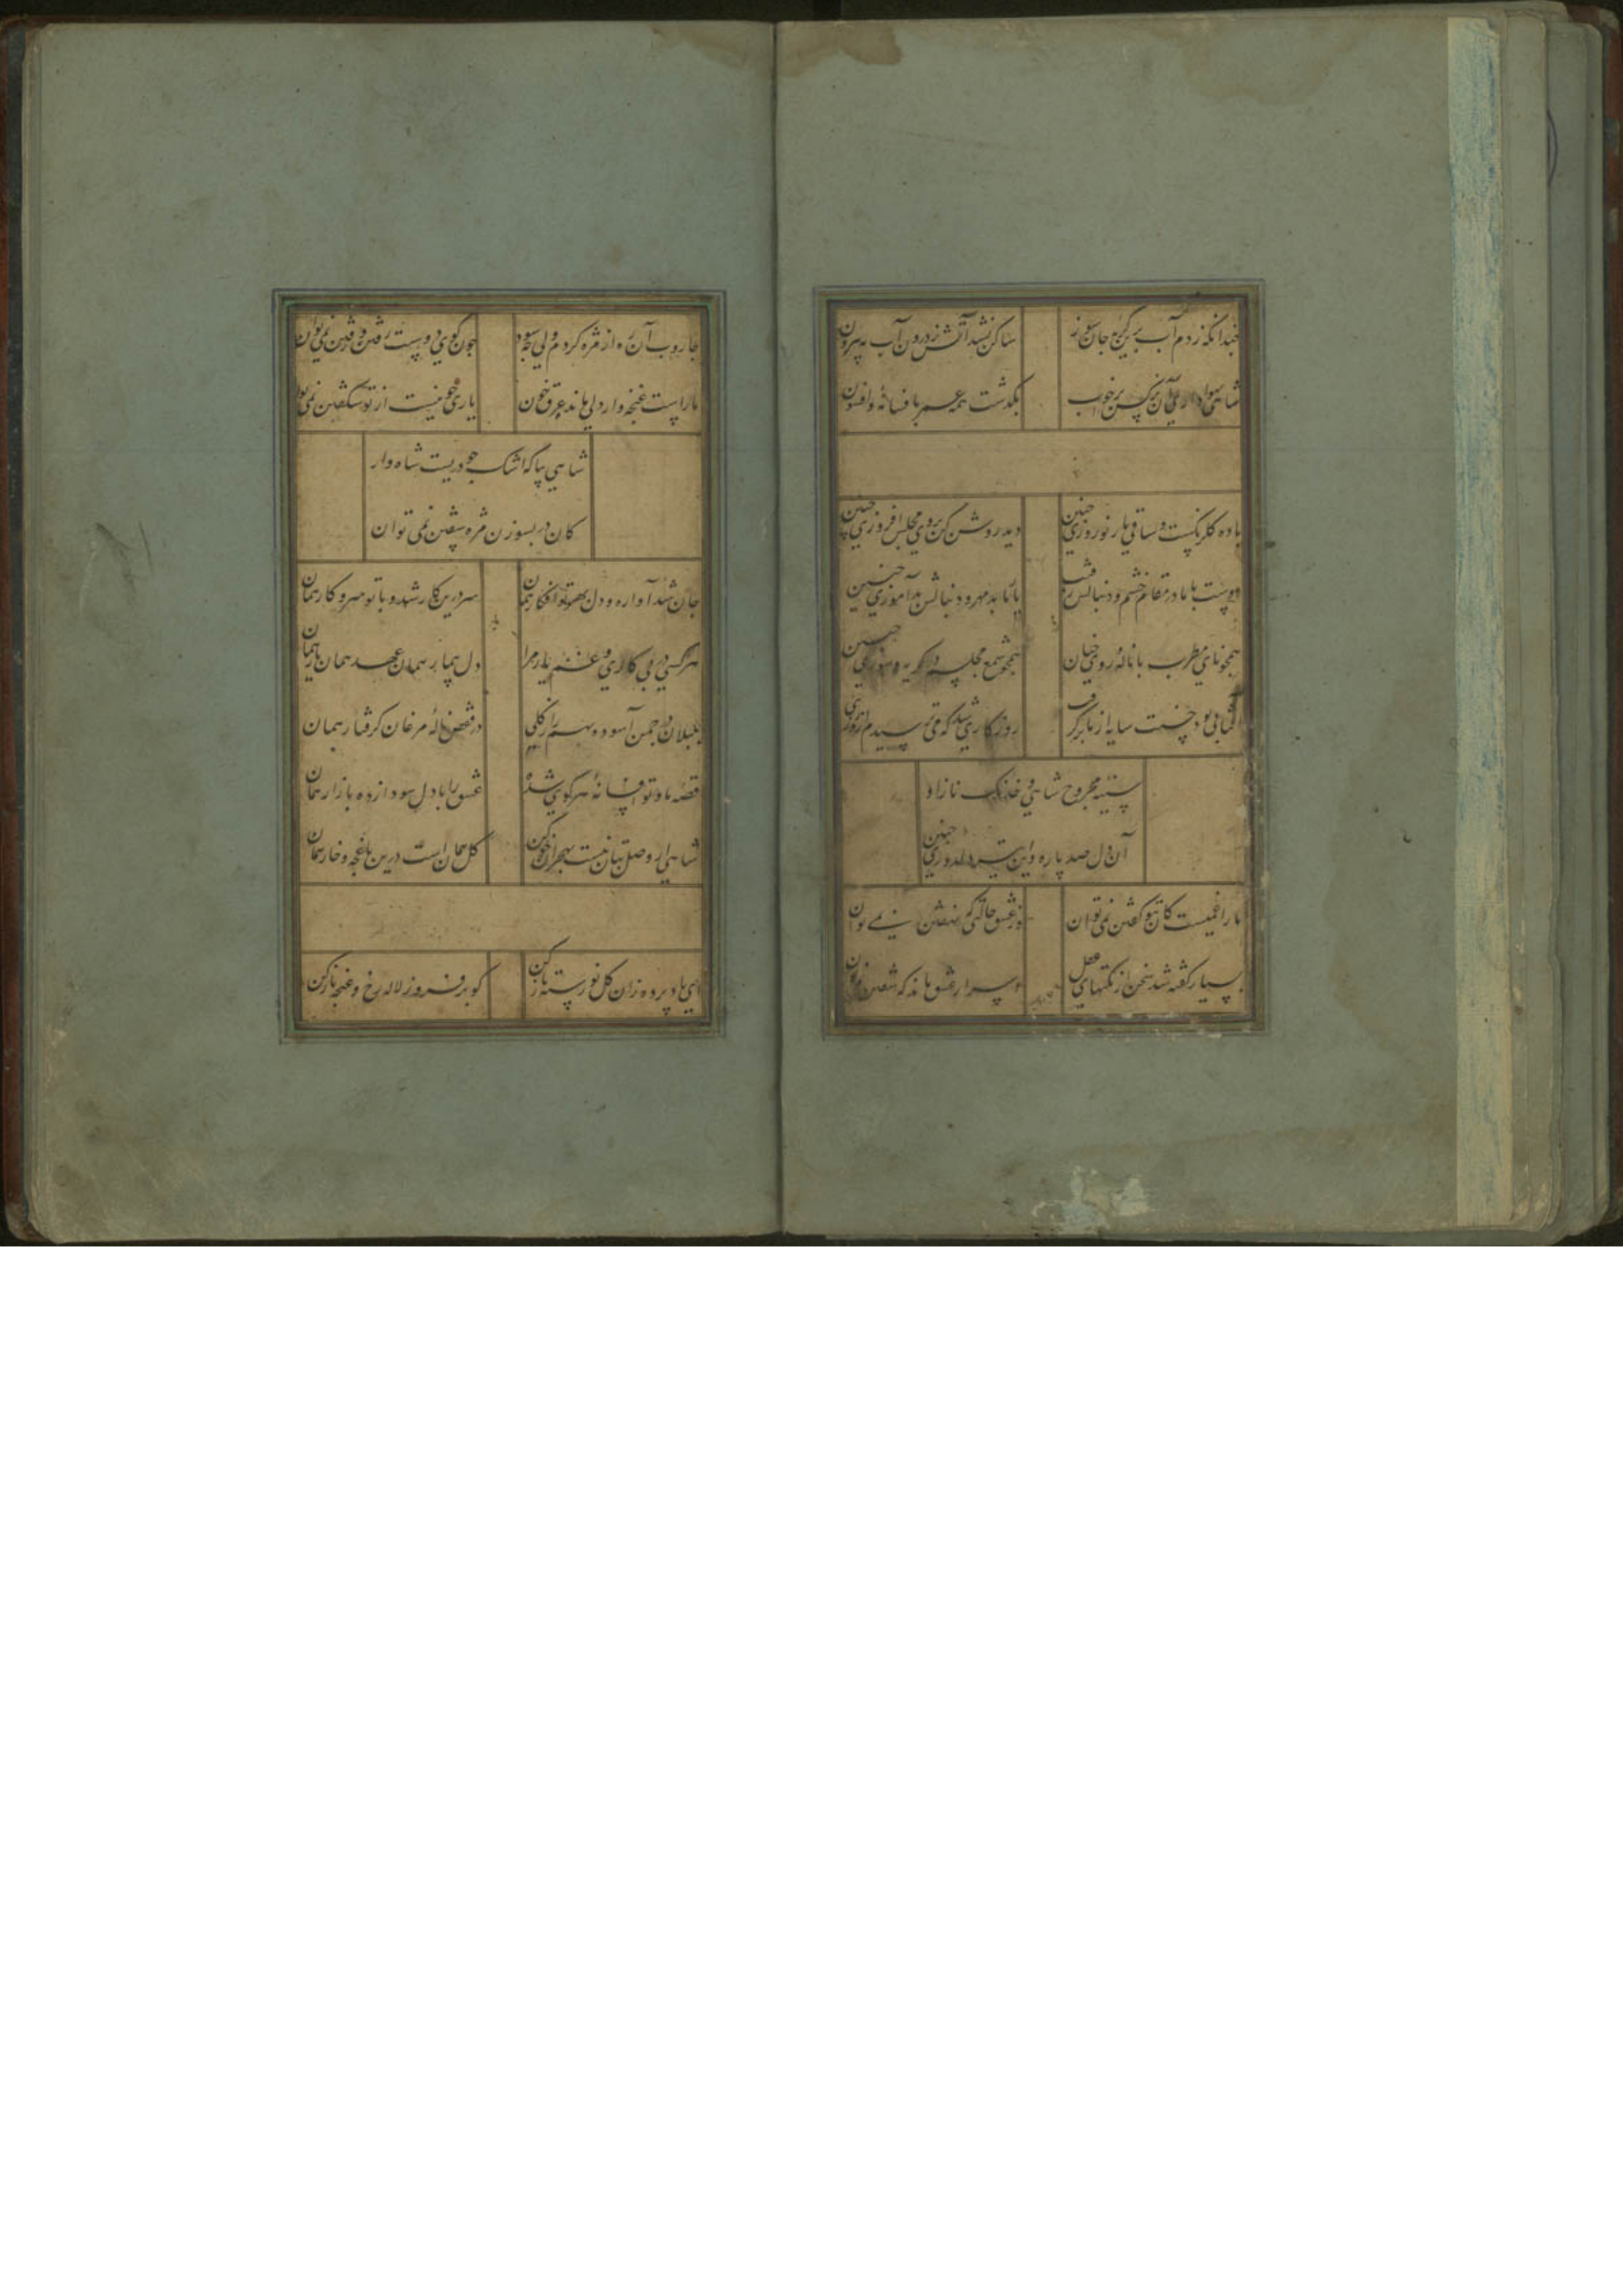 چندانکه زدم آب برین گریه جان سوز ساکن نشد آتش ز درون آب به بیرون
شاهی بهوا داری آن نرکس پرخوب بگذشت همه عمر بافسانه و افسون
باده گلرنگست و ساقی یار نوروزی چنین دیده روشن کن بروی مجلس افروزی چنین
دوست با ما در مقام خشم و دنبالش رقیب یار ما بد مهر و دنبالش بدآموزی چنین
همچو نای مطرب با ناله و رویی چنان همچو شمع مجلسم در گریه و سوزی چنین
آفتابی بود حسنت سایه از ما برگرفت روزگاری شد که می ترسیدم از روزی چنین
سینه مجروح شاهی و خدنک ناز او
آن دل صد پاره و این تیر دلدوزی چنین
ما را غمیست کان بتو گفتن نمی توان وز عشق حالتی که نهفتن نمی توان
بسیار گفته شد سخن از نکتهای عقل اسرار عشق ماند که گفتن نمی توان
جاروب آن ره از مژه کردم ولی چه سود چون کوی دوست رفتن و رفتن نمی توان
ما راست غنچه وار دلی مانده غرق خون یاری چو نیست از تو شکفتن نمی توان
شاهی بیا که اشک چو دریست شاه وار
کان در بسوزن مژه سفتن نمی توان
جان شد آواره و دل بهر تو افکار همان سر درین کار شد و با تو سر و کار همان
هر کسی در پی کاری و غم یار مرا دل همان بر همان عهد همان یار همان
بلبلان در چمن آسوده بهمراز گلی در قفص ناله مرغان گرفتار همان
قصه ما و تو افسانه هر کوی شده عشق را با دل سودازده بازار همان
شاهی ار وصل بتان نیست بهجران خو کن گل همان است درین باغچه و خار همان
ای باد پرده زان گل نورسته باز کن کو بر فروز لاله رخ و غنچه ناز کن